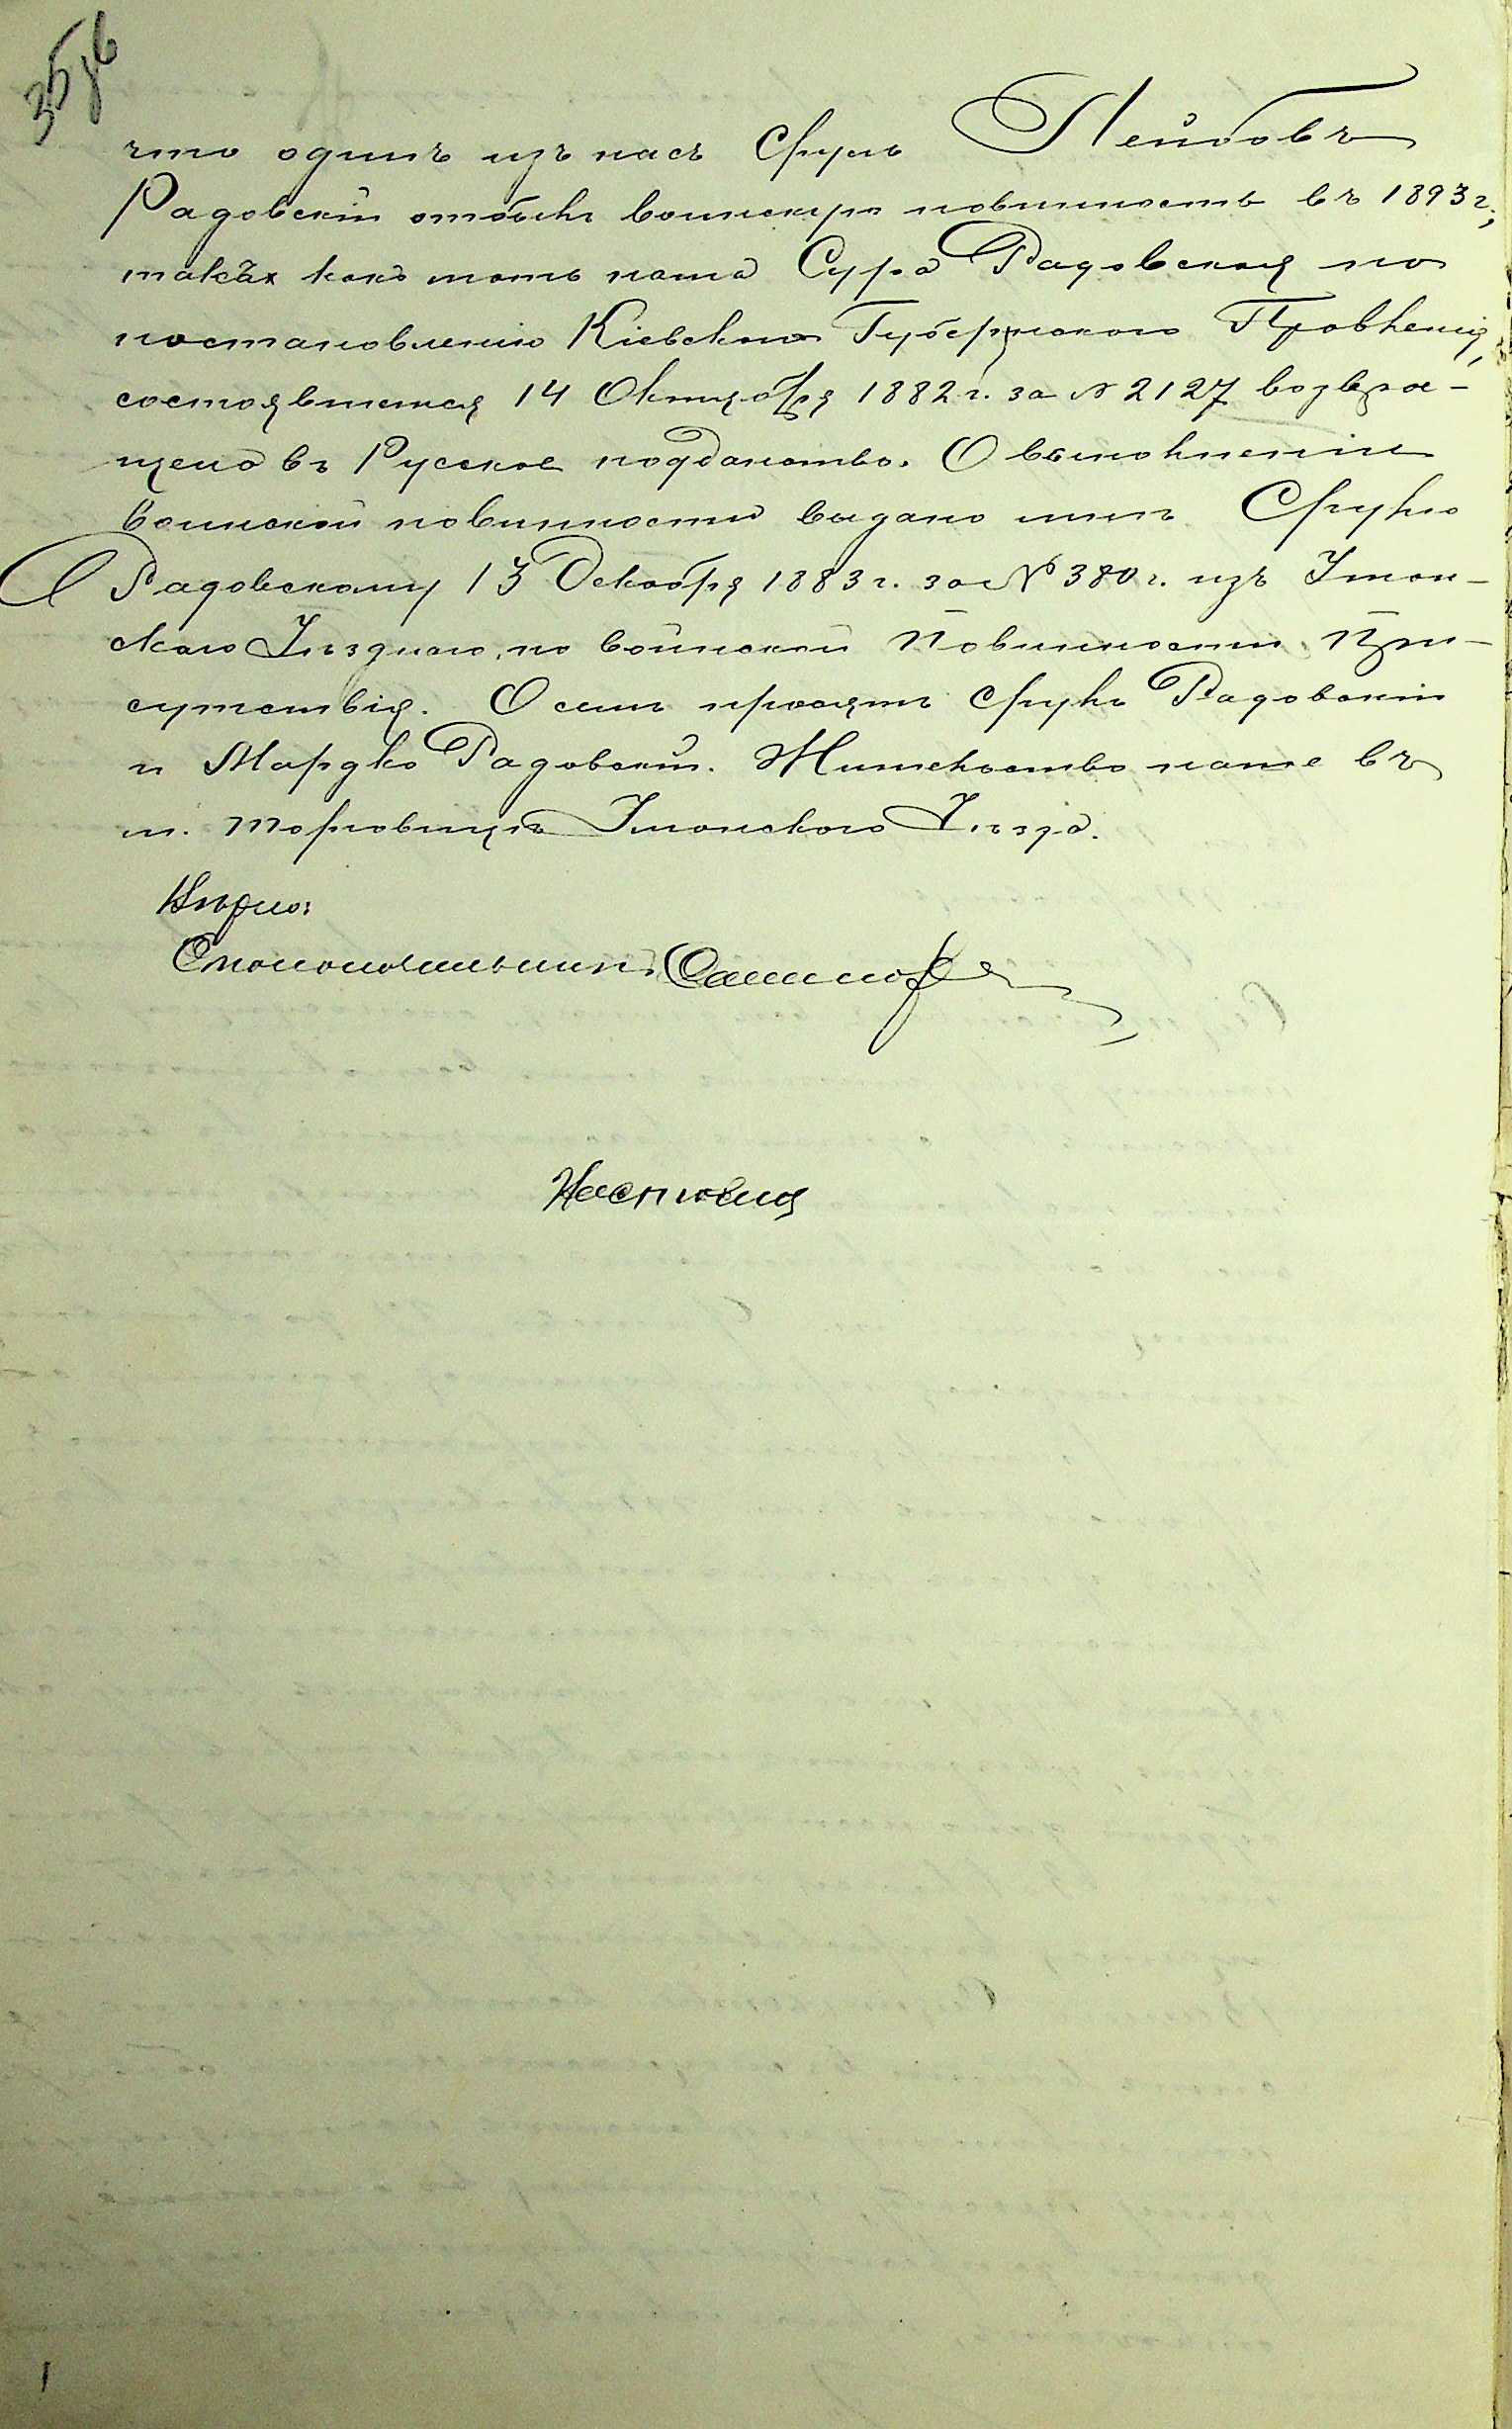 35 зв
что одинъ изъ насъ Сруль Лейбовъ
Радовскій отбылъ воинскую повинность въ 1893 г;
также какъ мать наша Сура Радовская по
постановленію Кіевскаго Губернскаго Правленія,
состоявшемся 14 Октября 1882 г. за № 2127 возвра-
щена въ Русское подданство. О выполненіи
воинской повинности выдано мнѣ Срулю
Радовскому 13 Декабря 1883 г. за № 380 г. изъ Уман-
скаго Уѣзднаго, по воинской Повинности При-
сутствія. О семъ просятъ Сруль Радовскій
и Мардко Радовскій. Жительство наше въ
м. Торговицѣ Уманскаго Уѣзда.
Вѣрно:
Столоначальникъ